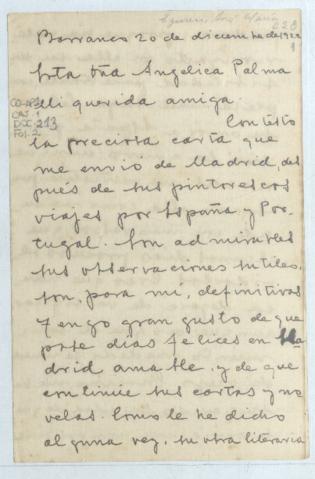 Eguren, José María
228
1
Barranco 20 de diciembre de 1922
Srta Dña Angélica Palma
Mi querida amiga.
CO-AP
CAJ. 1
DOC. 213
FOL. 2
Contesto
la preciosa carta que
me envió de Madrid, des
pués de sus pintorescos
viajes por España y Por-
tugal. Son admirables
sus observaciones sutiles.
Son, para mí, definitivas
Tengo gran gusto de que
pase días felices en Ma
drid amable, y de que
continúe sus cartas y no
velas. Como le he dicho
alguna vez, su obra literaria